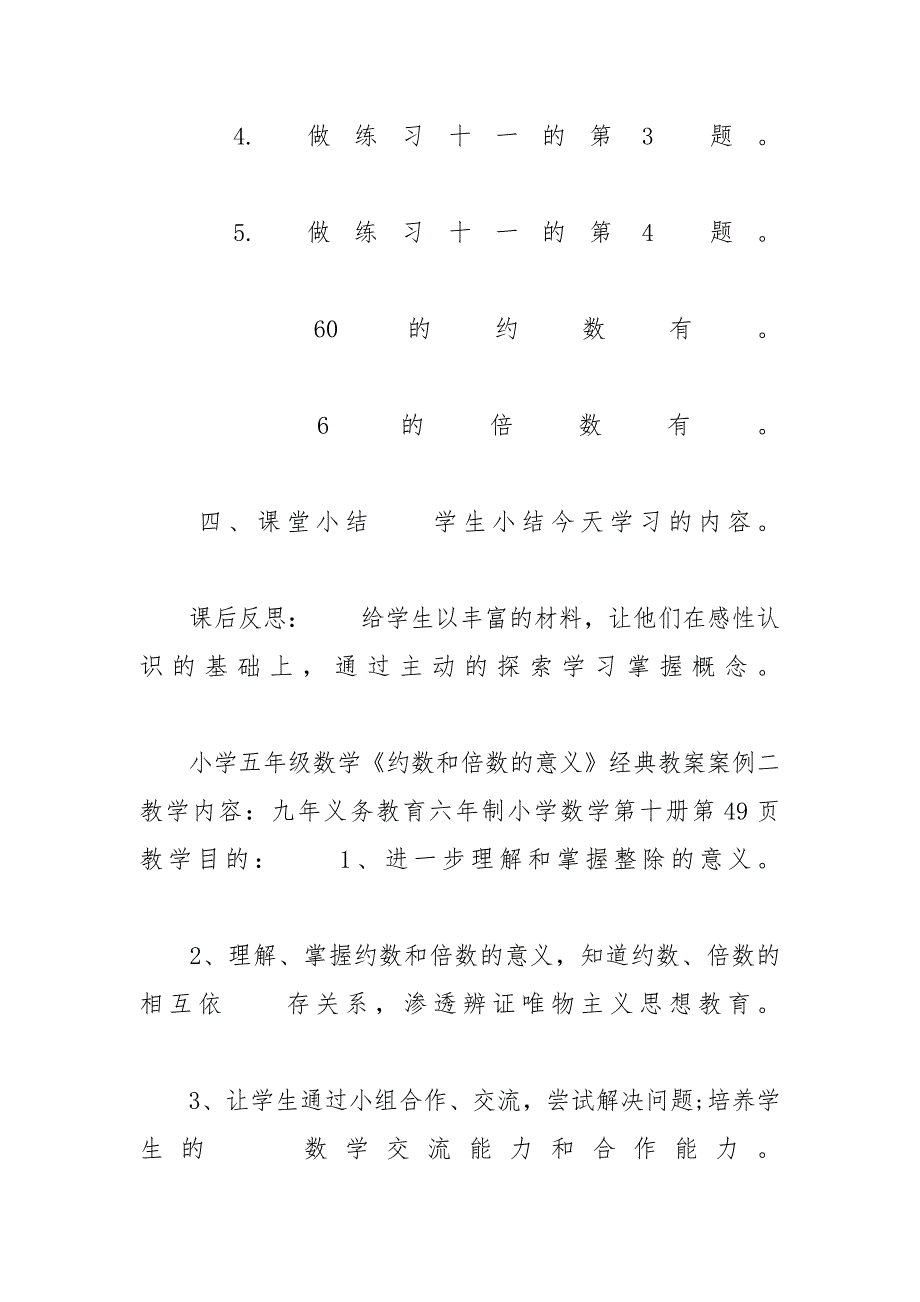 4. 做练习十一的第3 题。
5. 做练习十一的第4 题。
60 的约数有。
6 的倍数有。
四、课堂小结 学生小结今天学习的内容。
课后反思： 给学生以丰富的材料，让他们在感性认
识的基础上，通过主动的探索学习掌握概念。
小学五年级数学《约数和倍数的意义》经典教案案例二
教学内容：九年义务教育六年制小学数学第十册第49页
教学目的： 1、进一步理解和掌握整除的意义。
2、理解、掌握约数和倍数的意义，知道约数、倍数的
相互依 存关系，渗透辨证唯物主义思想教育。
3、让学生通过小组合作、交流，尝试解决问题;培养学
生的 数学交流能力和合作能力。